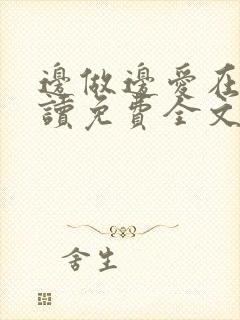 邊做邊愛在
讀免費全文
舍生